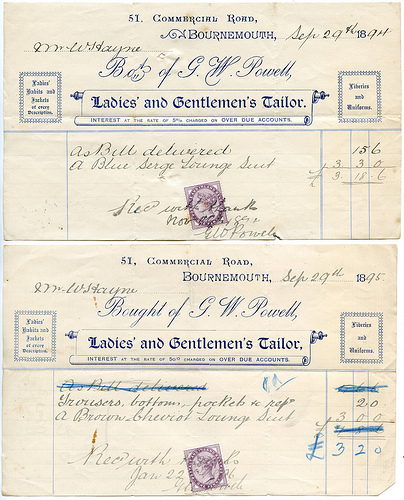 51, Commercial Road,
Bournemouth, Sep 29th 1894
Mr W Hayne
Bot of G. W. Powell,
Ladies' Habits and Jackets of every Description.
Ladies' and Gentlemen's Tailor.
Liveries and Uniforms.
INTEREST AT THE RATE OF 5% CHARGED ON OVER DUE ACCOUNTS.
As Bill delivered 15 6
A Blue Serge Lounge Suit 3 3 0
£ 3 18 6
Recd with thanks
Nov
G W Powell
51, Commercial Road,
Bournemouth, Sep 29th 1895
Mr W Hayne
Bought of G. W. Powell,
Ladies' Habits and Jackets of every Description.
Ladies' and Gentlemen's Tailor,
Liveries and Uniforms.
INTEREST AT THE RATE OF 5% CHARGED ON OVER DUE ACCOUNTS.
As Bill delivered
Trousers, bottoms, pockets & rep 2 0
A Brown Cheviot Lounge Suit 3 0 0
£ 3 2 0
Recd with thanks
Jan 22
G W Powell